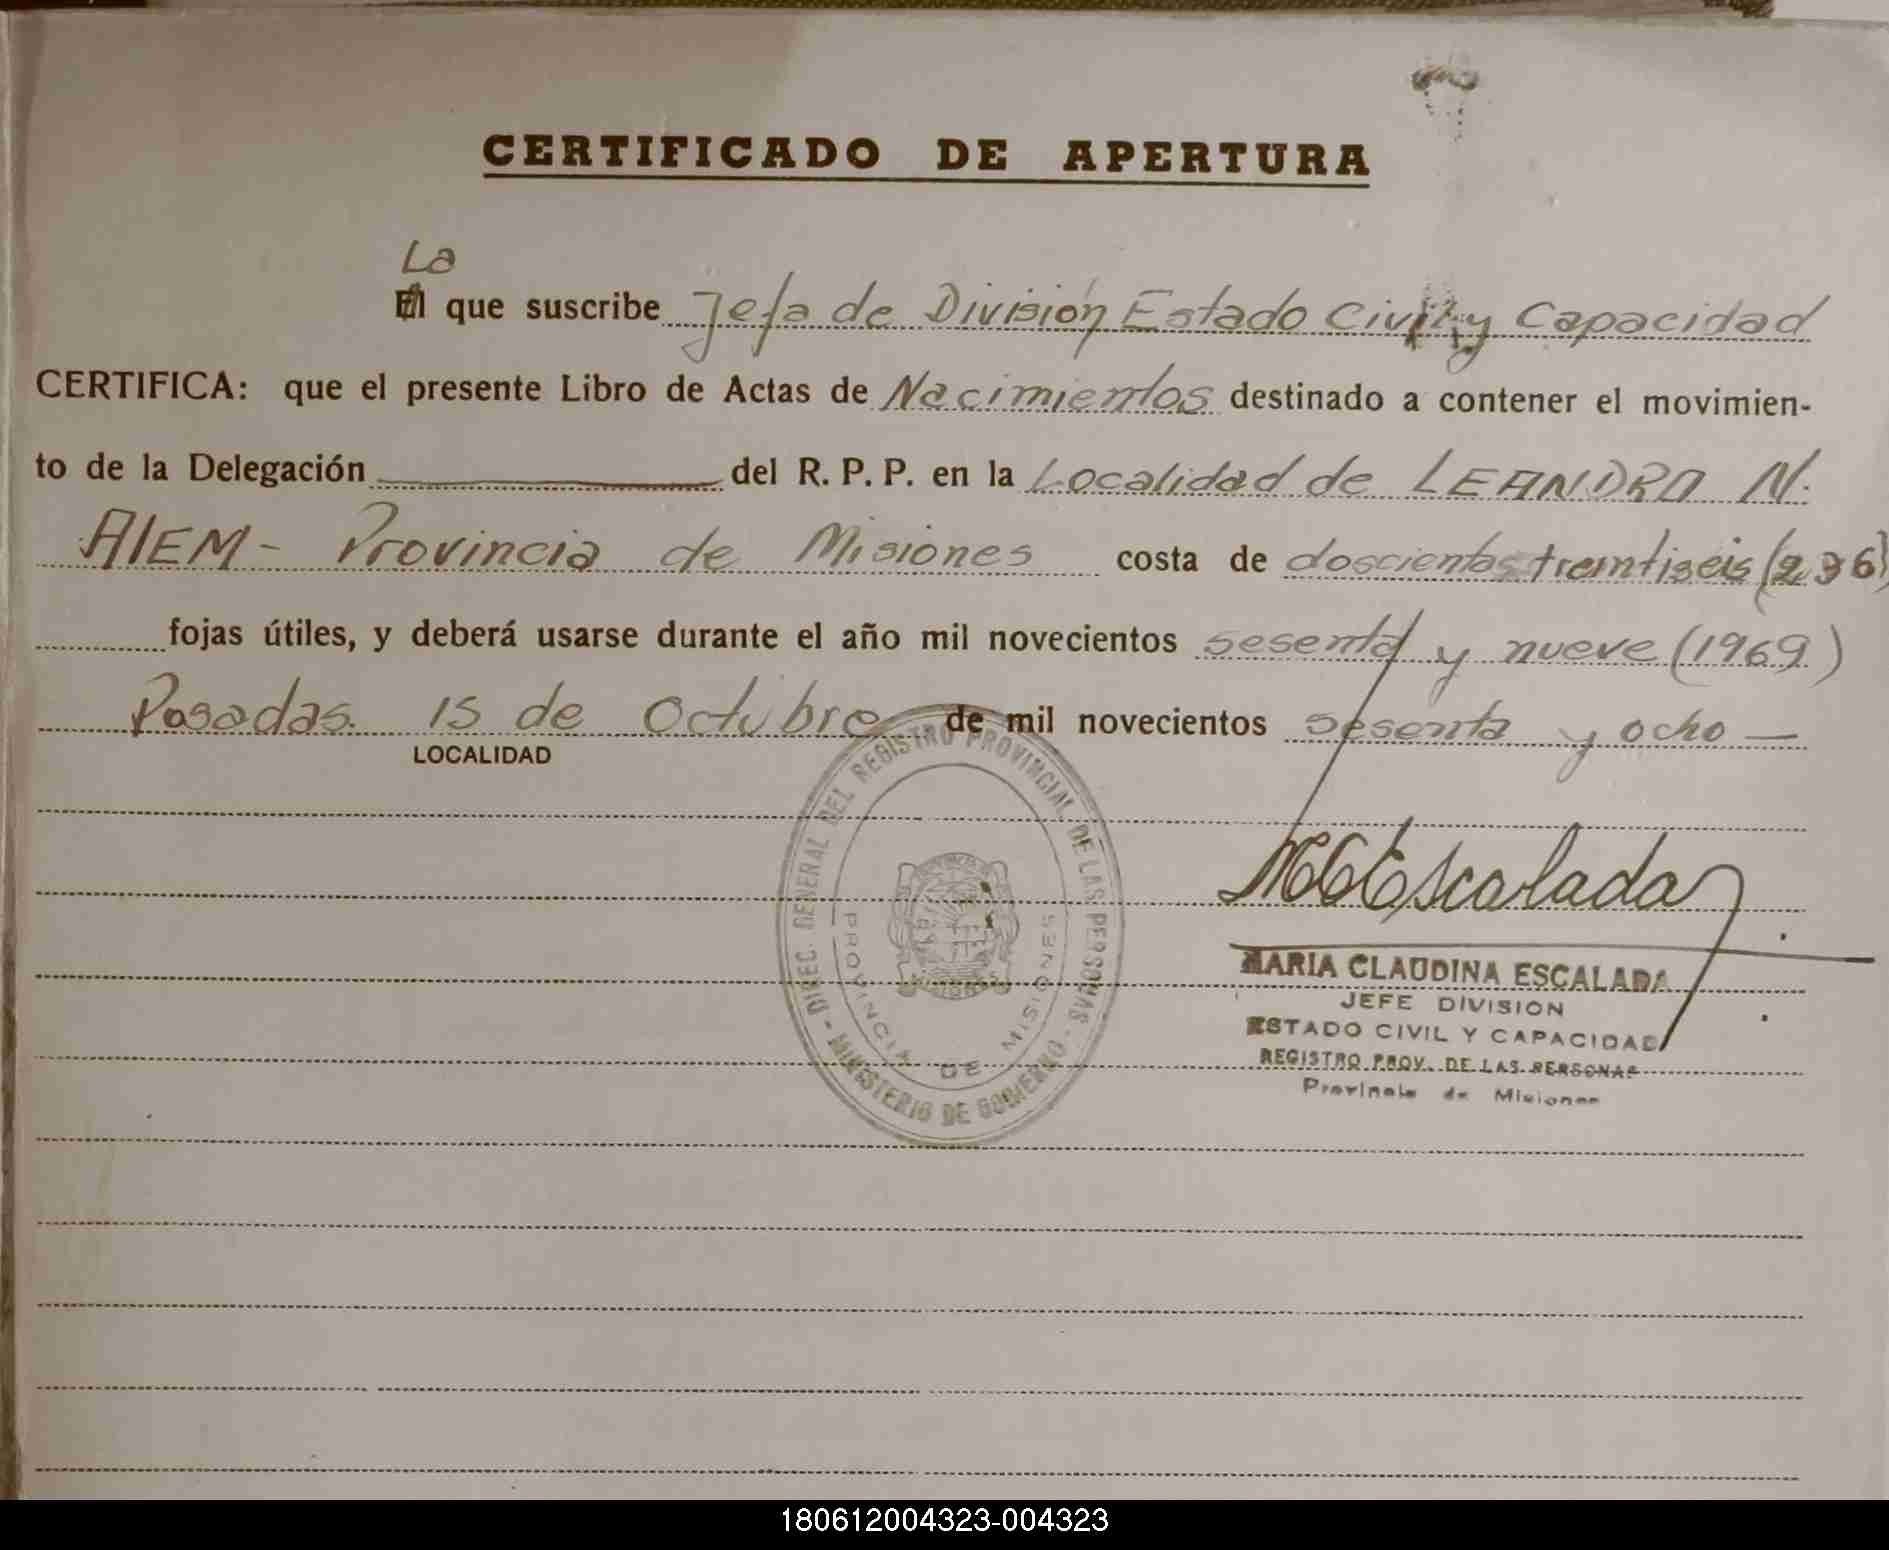 CERTIFICADO DE APERTURA
La
El que suscribe Jefa de División Estado Civil y Capacidad
CERTIFICA: que el presente Libro de Actas de Nacimientos destinado a contener el movimien-
to de la Delegación del R. P. P. en la Localidad de LEANDRO N.
ALEM - Provincia de Misiones costa de doscientos treintiseis (236)
fojas útiles, y deberá usarse durante el año mil novecientos sesenta y nueve (1969)
Posadas. 15 de Octubre de mil novecientos sesenta y ocho —
LOCALIDAD
DIREC. GENERAL DEL REGISTRO PROVINCIAL DE LAS PERSONAS - MINISTERIO DE GOBIERNO -
PROVINCIA DE MISIONES
MCEscalada
MARIA CLAUDINA ESCALADA
JEFE DIVISION
ESTADO CIVIL Y CAPACIDAD
REGISTRO PROV. DE LAS PERSONAS
Provincia de Misiones
180612004323-004323